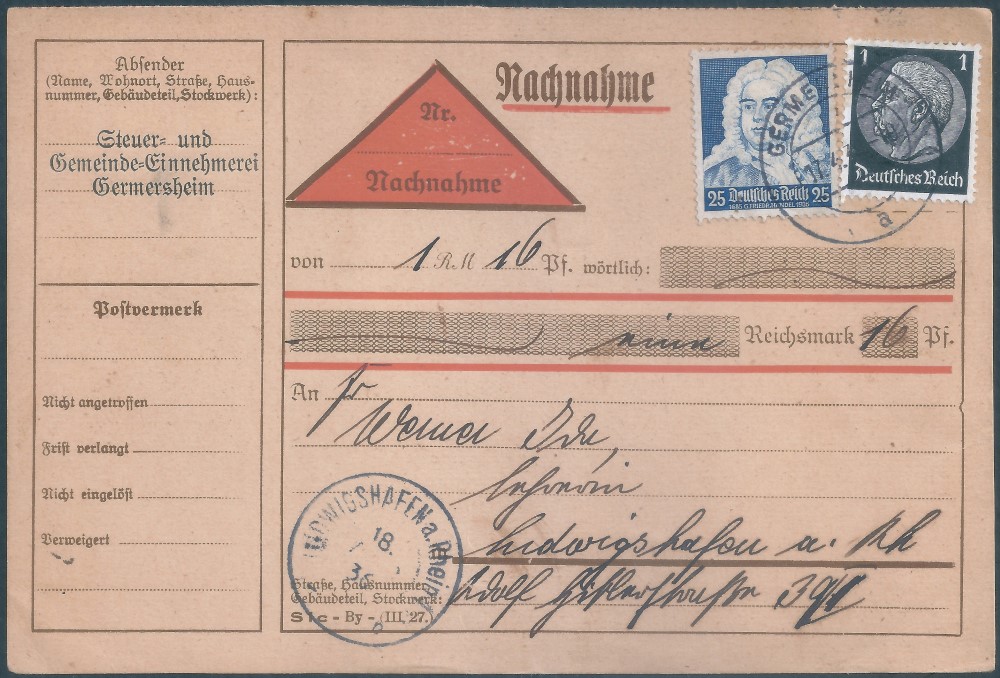 Absender
(Name, Wohnort, Straße, Haus-
nummer, Gebäudeteil, Stockwerk):
Steuer- und
Gemeinde-Einnehmerei
Germersheim
Postvermerk
Nicht angetroffen
Frist verlangt
Nicht eingelöst
Verweigert
Nachnahme
Nr.
Nachnahme
25 Deutsches Reich 25
1685 G. FRIEDR. HÄNDEL 1935
1 1
Deutsches Reich
GERMERSHEIM
a
von 1 RM 16 Pf. wörtlich:
eine Reichsmark 16 Pf.
An Fr
Werner Ida,
Lehrerin
Ludwigshafen a. Rh
Adolf Hitlerstraße
LUDWIGSHAFEN a. Rhein
18.
35
Straße, Hausnummer,
Gebäudeteil, Stockwerk:
Stc - By - (III. 27.)